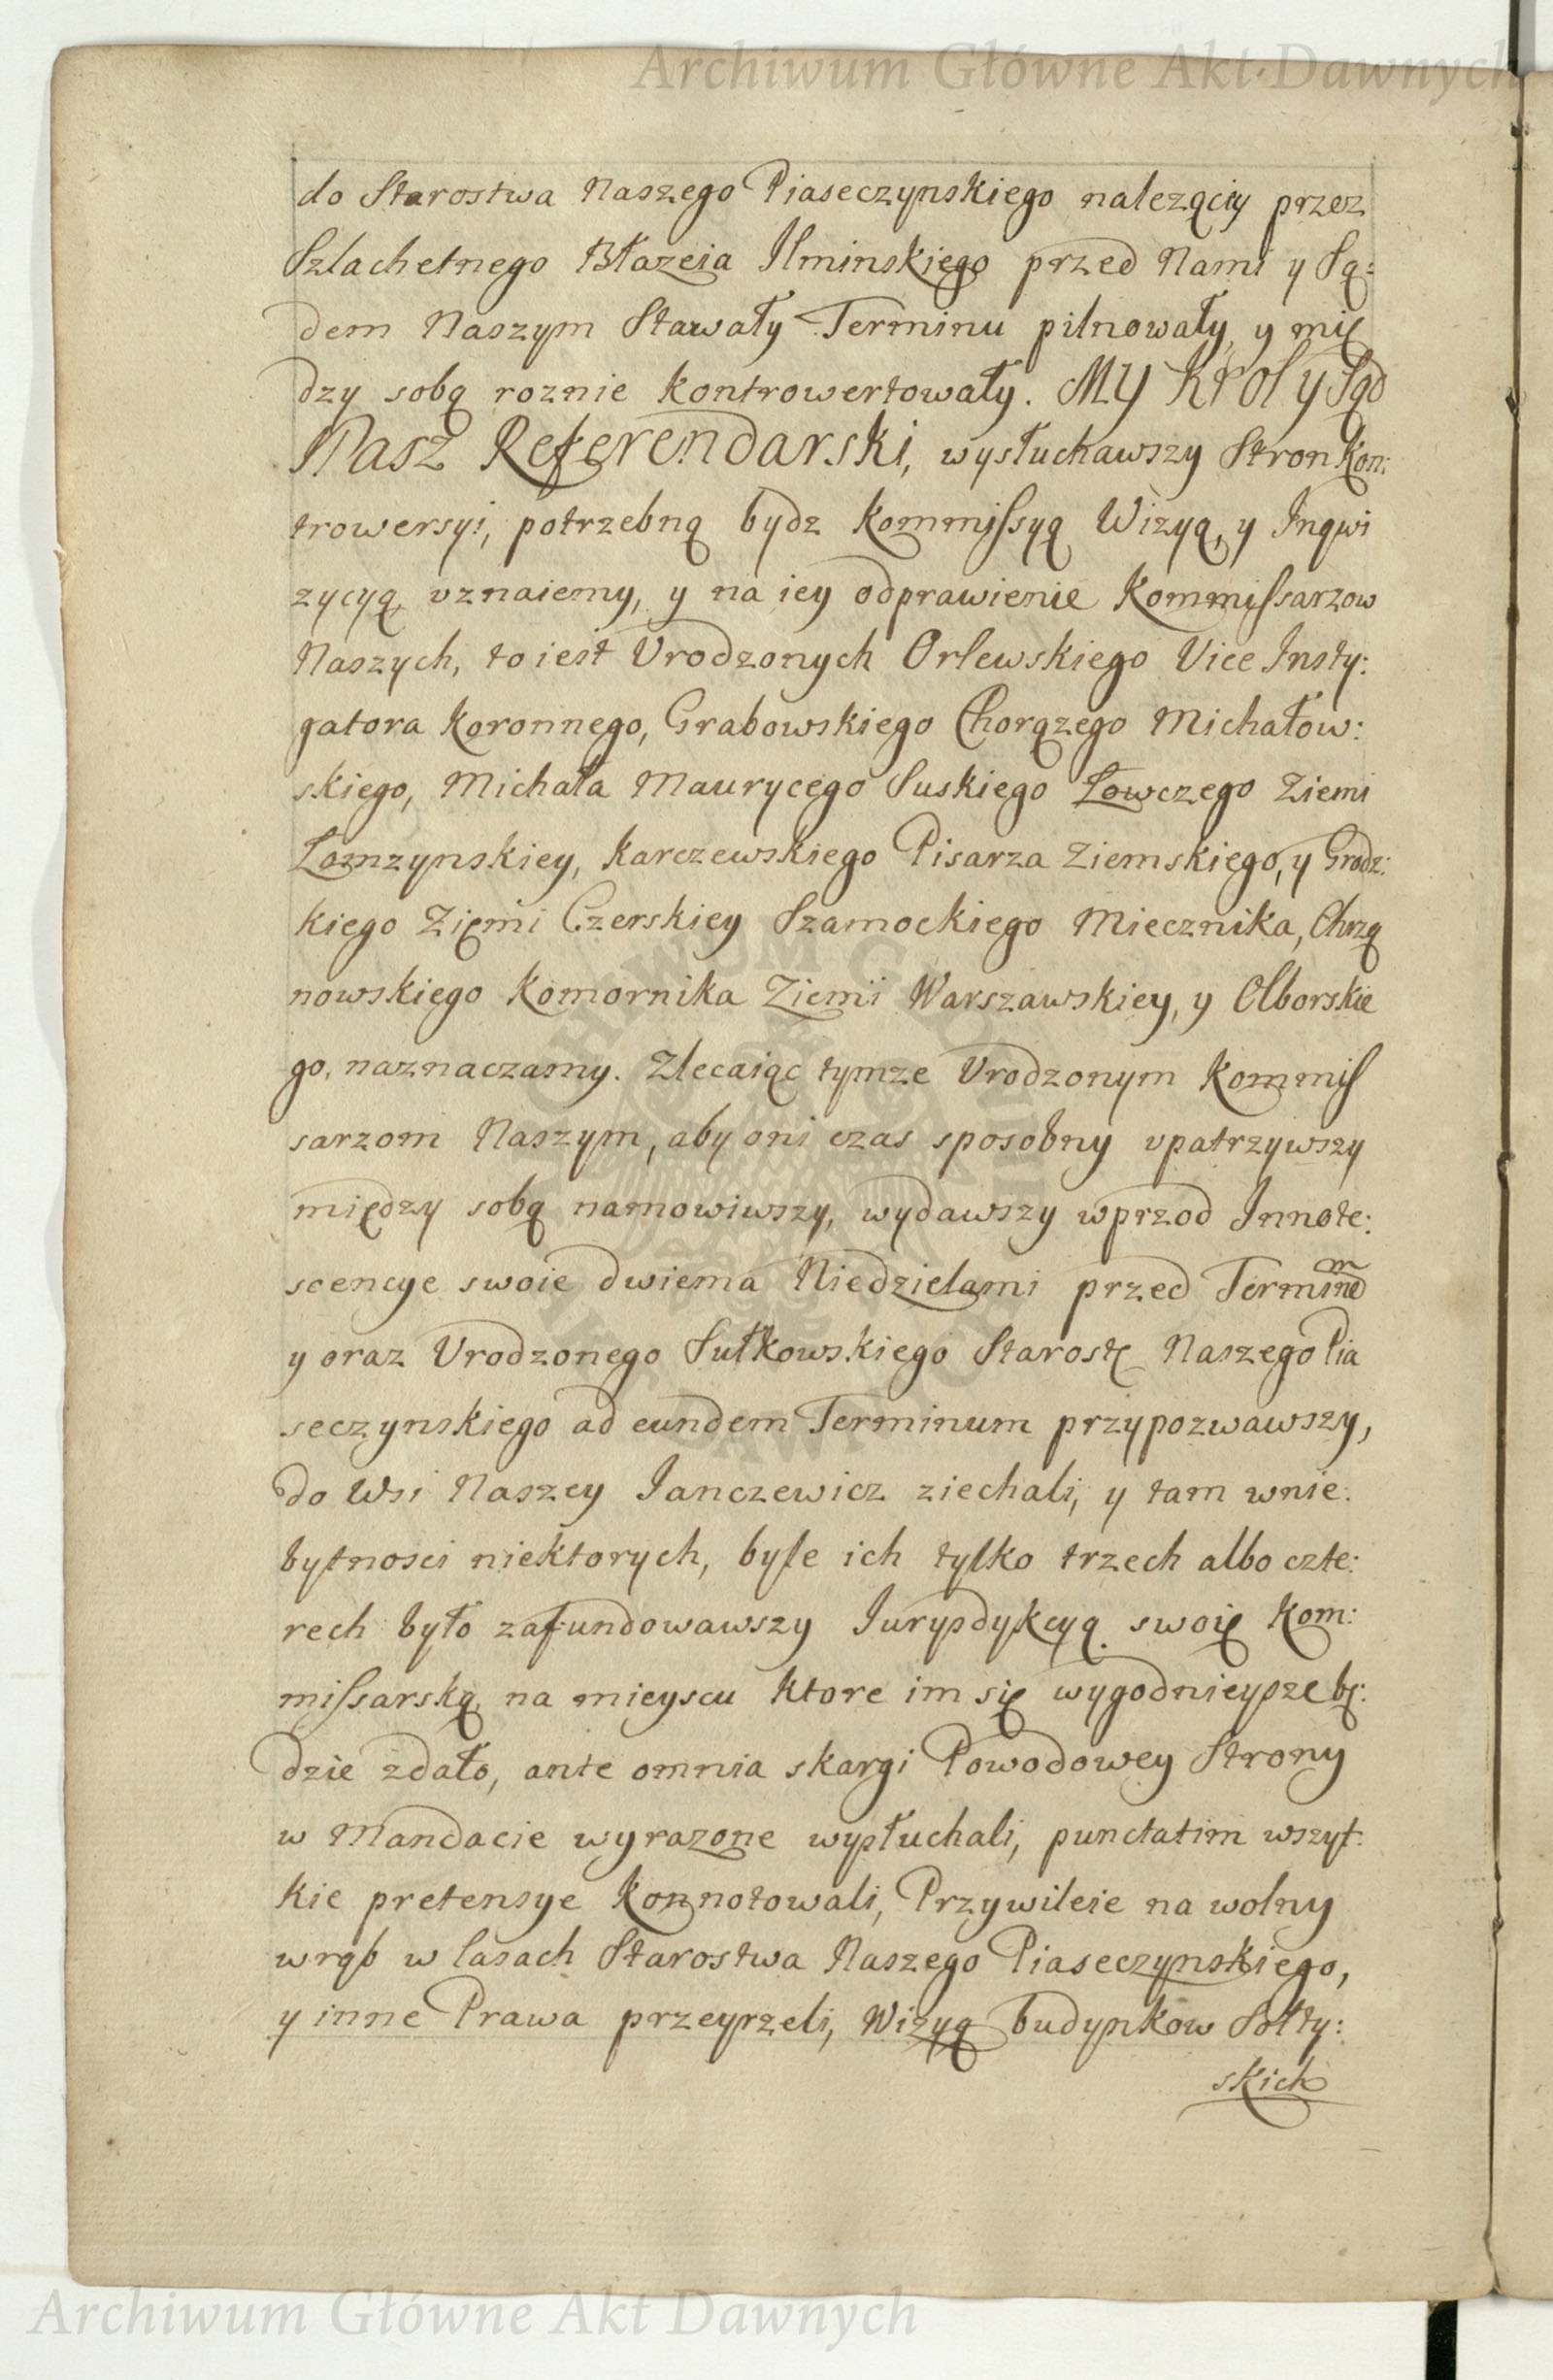 Archiwum Główne Akt Dawnych
do Starostwa Naszego Piaseczynskiego nalezqciy przez
Szlachetnego Błazeia Ilminskiego przed Nami y Są:
dem Naszym Stawały Terminu pilnowały, y mię
dzy sobą roznie kontrowertowały. MY Krol y Sąd
Nasz Referendarski, wysłuchawszy Stron Kon:
trowersyi, potrzebną bydz Kommissyą Wizyą, y Inqwi
zycyą, uznaiemy, y na iey odprawienie Kommissarzow
Naszych, to iest Urodzonych Orlewskiego Vice Insty:
gatora Koronnego, Grabowskiego Chorązego Michałow:
skiego, Michała Maurycego Suskiego Łowczego Ziemi
Łomzynskiey, Karczewskiego Pisarza Ziemskiego, y Grodz:
kiego Ziemi Czerskiey Szamockiego Miecznika, Chrzą
nowskiego Komornika Ziemi Warszawskiey, y Olborskie
go, naznaczamy. Zlecaiąc tymze Urodzonym Kommis
sarzom Naszym, aby oni czas sposobny upatrzywszy
między sobą namowiwszy, wydawszy wprzod Innote:
scencye swoie dwiema Niedzielami przed Terminem
y oraz Urodzonego Sułkowskiego Starostę Naszego Pia
seczynskiego ad eundem Terminum przypozwawszy,
do Wsi Naszey Ianczewicz ziechali, y tam wnie:
bytnosci niektorych, byle ich tylko trzech albo czte:
rech było zafundowawszy Iurysdykcyą swoię Kom:
missarską, na mieyscu ktore im się wygodnieysze bę:
dzie zdało, ante omnia skargi Powodowey Strony
w Mandacie wyrazone wysłuchali, punctatim wszyt:
kie pretensye konnotowali, Przywileie na wolny
wrąb w lasach Starostwa Naszego Piaseczynskiego,
y inne Prawa przeyrzeli, Wizyą budynkow Sołty:
skich
Archiwum Główne Akt Dawnych